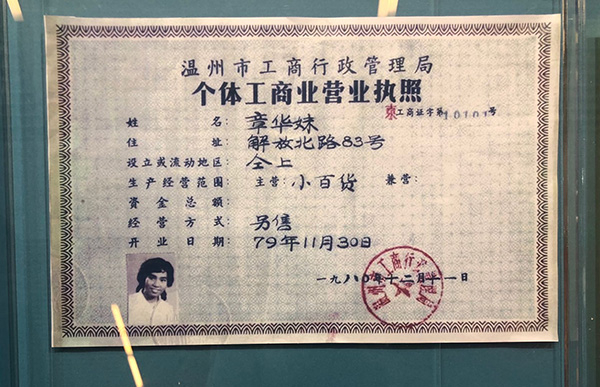 温州市工商行政管理局
个体工商业营业执照
东工商证字第10101号
姓 名：章华妹
住 址：解放北路83号
设立或流动地区：仝上
生产经营范围：主营：小百货 兼营：
资金总额：
经营方式：另售
开业日期：79年11月30日
一九八〇年十二月十一日
温州市工商行政管理局